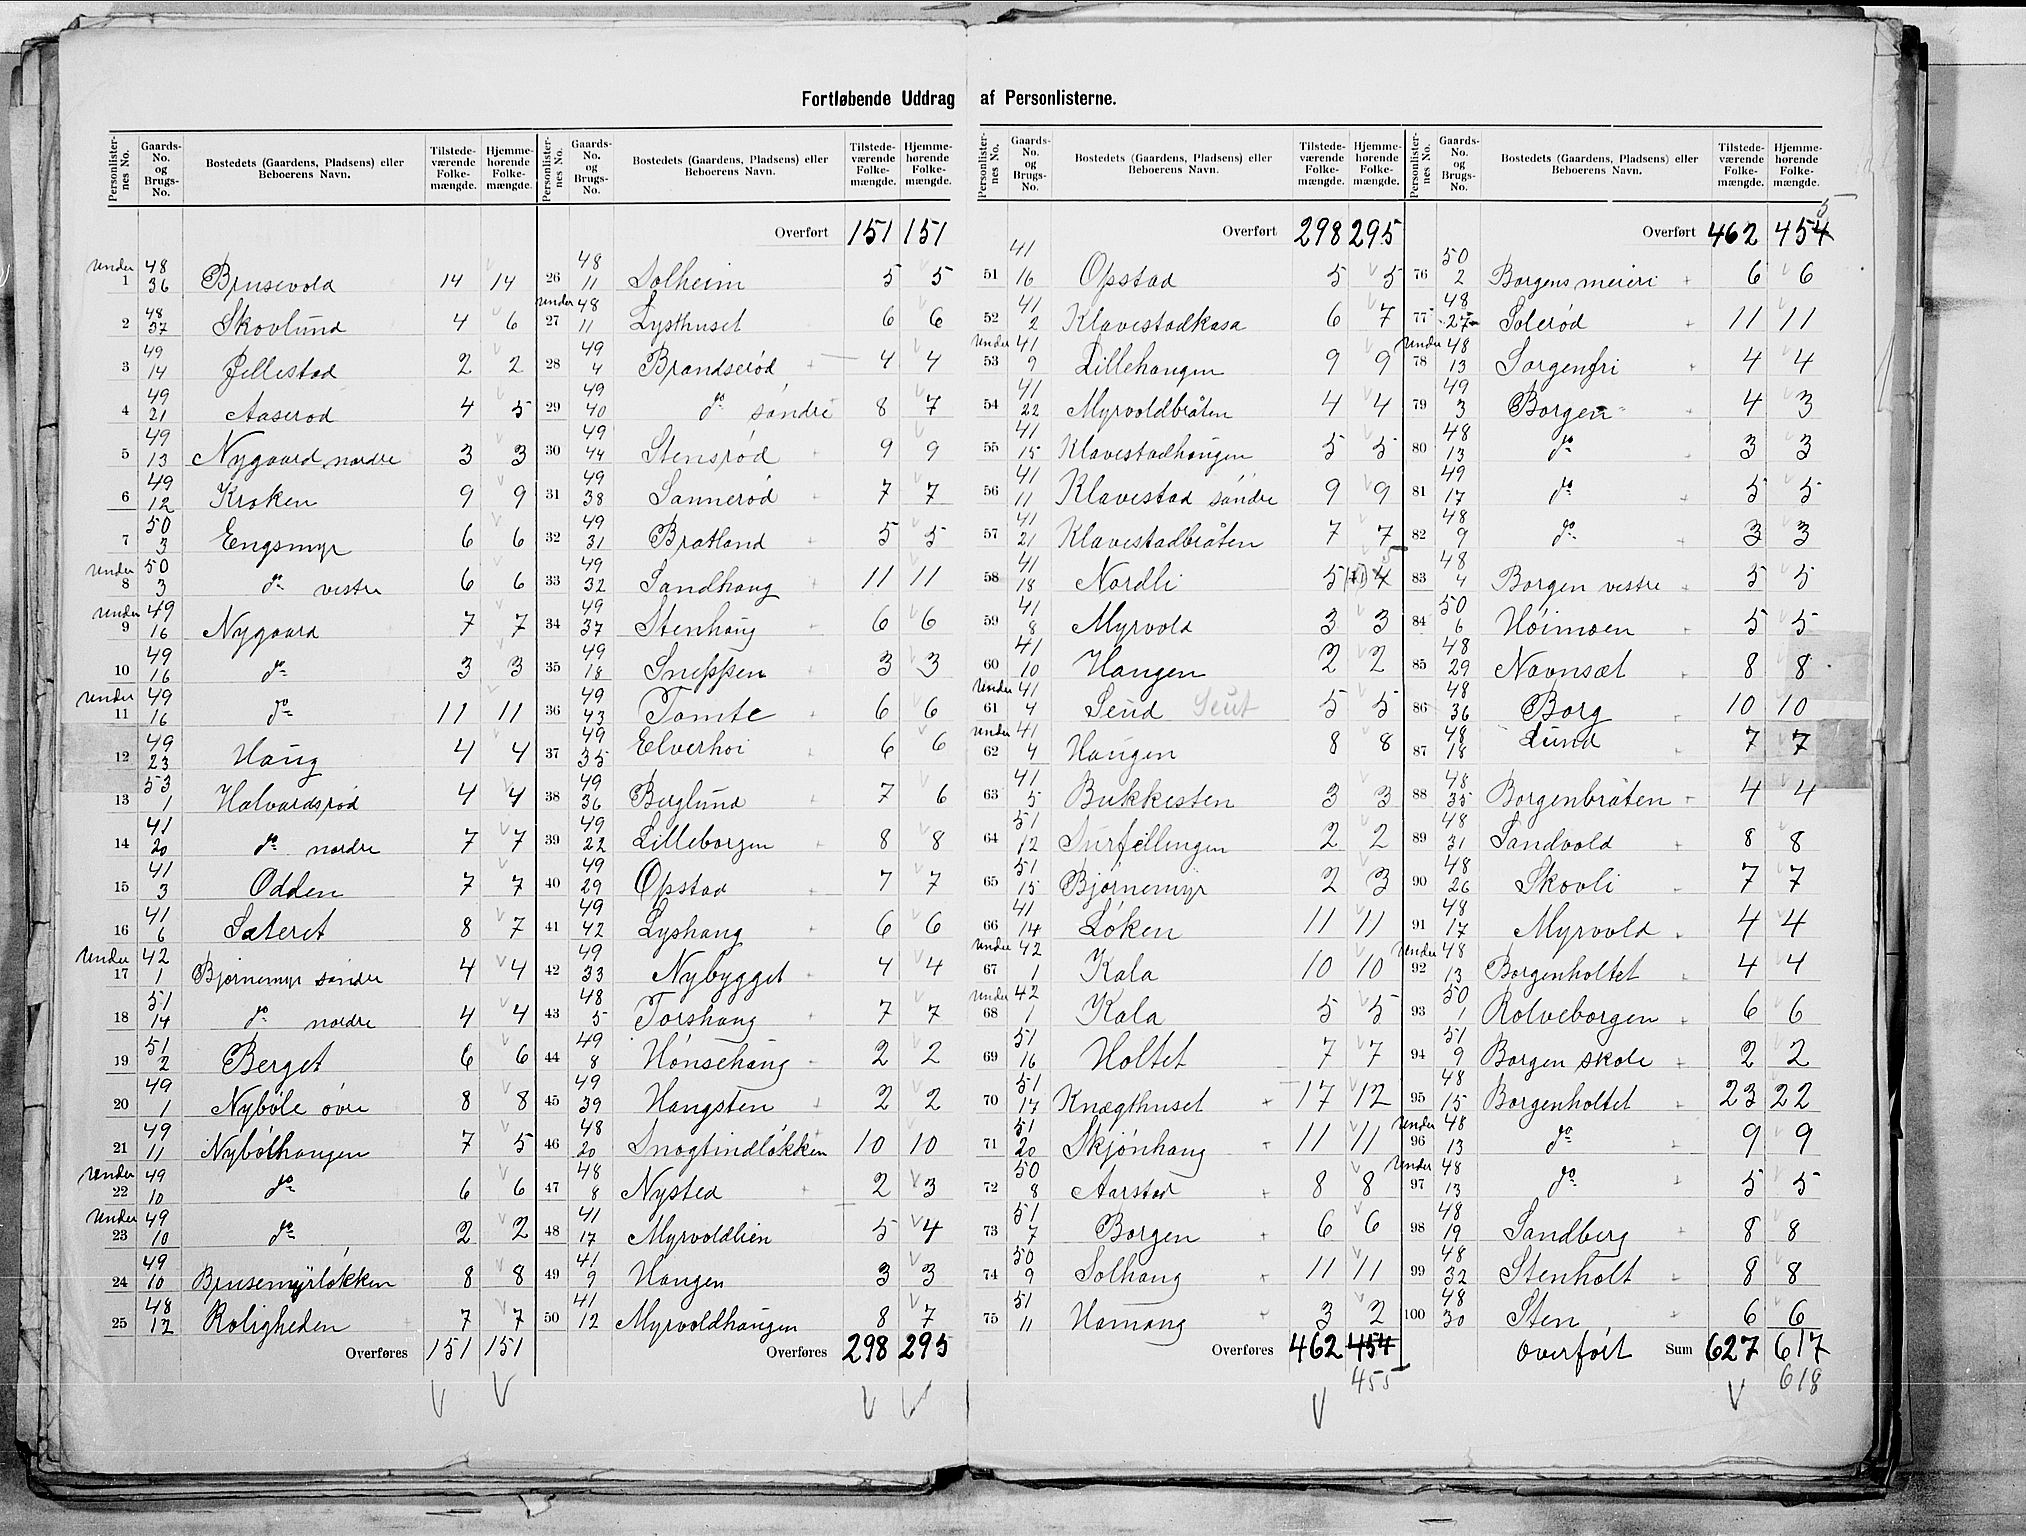 Fortløbende Uddrag af Personlisternes.
Personlisternes No. | Gaards-No. og Brugs-No. | Bostedets (Gaardens, Pladsens) eller Beboerens Navn. | Tilstedeværende Folkemængde. | Hjemmehørende Folkemængde.
under 1 | 48 36 | Brusevold | 14 | 14
2 | 48 37 | Skovlund | 4 | 6
3 | 49 14 | Jellestad | 2 | 2
4 | 49 21 | Aaserød | 4 | 5
5 | 49 13 | Nygaard nordre | 3 | 3
6 | 49 12 | Kroken | 9 | 9
7 | 50 3 | Engsmyr | 6 | 6
under 8 | 50 3 | do vestre | 6 | 6
under 9 | 49 16 | Nygaard | 7 | 7
10 | 49 16 | do | 3 | 3
under 11 | 49 16 | do | 11 | 11
12 | 49 23 | Haug | 4 | 4
13 | 53 1 | Halvardsrød | 4 | 4
14 | 41 20 | do nordre | 7 | 7
15 | 41 3 | Odden | 7 | 7
16 | 41 6 | Sæteret | 8 | 7
under 17 | 42 1 | Bjørnemyr søndre | 4 | 4
18 | 51 14 | do nordre | 4 | 4
19 | 51 2 | Berget | 6 | 6
20 | 49 1 | Nybøle øvre | 8 | 8
21 | 49 11 | Nybølhaugen | 7 | 5
under 22 | 49 10 | do | 6 | 6
under 23 | 49 10 | do | 2 | 2
24 | 49 10 | Brusemyrløkken | 8 | 8
25 | 48 12 | Roligheden | 7 | 7
Overføres 151 151
Personlisternes No. | Gaards-No. og Brugs-No. | Bostedets (Gaardens, Pladsens) eller Beboerens Navn. | Tilstedeværende Folkemængde. | Hjemmehørende Folkemængde.
Overført 151 151
26 | 48 11 | Solheim | 5 | 5
under 27 | 48 11 | Lysthuset | 6 | 6
28 | 49 4 | Brandserød | 4 | 4
29 | 49 40 | do søndre | 8 | 7
30 | 49 44 | Stensrød | 9 | 9
31 | 49 38 | Sannerød | 7 | 7
32 | 49 31 | Bratland | 5 | 5
33 | 49 32 | Sandhaug | 11 | 11
34 | 49 37 | Stenhaug | 6 | 6
35 | 49 18 | Sneppen | 3 | 3
36 | 49 43 | Tomte | 6 | 6
37 | 49 35 | Elverhøi | 6 | 6
38 | 49 36 | Berglund | 7 | 6
39 | 49 22 | Lilleborgen | 8 | 8
40 | 49 29 | Opstad | 7 | 7
41 | 49 42 | Lyshaug | 6 | 6
42 | 49 33 | Nybygget | 4 | 4
43 | 48 5 | Torshaug | 7 | 7
44 | 49 8 | Hønsehaug | 2 | 2
45 | 49 39 | Haugsten | 2 | 2
46 | 48 20 | Snogtindløkken | 10 | 10
47 | 48 8 | Nysted | 2 | 3
48 | 41 17 | Myrvoldlien | 5 | 4
49 | 41 9 | Haugen | 3 | 3
50 | 41 12 | Myrvoldhaugen | 8 | 7
Overføres 298 295
Personlisternes No. | Gaards-No. og Brugs-No. | Bostedets (Gaardens, Pladsens) eller Beboerens Navn. | Tilstedeværende Folkemængde. | Hjemmehørende Folkemængde.
Overført 298 295
51 | 41 16 | Opstad | 5 | 5
52 | 41 2 | Klavestadkasa | 6 | 7
under 53 | 41 9 | Lillehaugen | 9 | 9
54 | 41 22 | Myrvoldbråten | 4 | 4
55 | 41 15 | Klavestadhaugen | 5 | 5
56 | 41 11 | Klavestad søndre | 9 | 9
57 | 41 21 | Klavestadbråten | 7 | 7
58 | 41 18 | Nordli | 5 | 4 5
59 | 41 8 | Myrvold | 3 | 3
60 | 41 10 | Haugen | 2 | 2
under 61 | 41 4 | Seud Seut | 5 | 5
under 62 | 41 4 | Haugen | 8 | 8
63 | 41 5 | Bukkesten | 3 | 3
64 | 51 12 | Surfellingen | 2 | 2
65 | 51 15 | Bjørnemyr | 2 | 3
66 | 41 14 | Løken | 11 | 11
under 67 | 42 1 | Kala | 10 | 10
under 68 | 42 1 | Kala | 5 | 5
69 | 51 16 | Holtet | 7 | 7
70 | 51 17 | Knægthuset | 17 | 12
71 | 51 20 | Skjønhaug | 11 | 11
72 | 50 8 | Aarstad | 8 | 8
73 | 51 7 | Borgen | 6 | 6
74 | 50 9 | Solhaug | 11 | 11
75 | 51 11 | Hamang | 3 | 2
Overføres 462 454
455
Personlisternes No. | Gaards-No. og Brugs-No. | Bostedets (Gaardens, Pladsens) eller Beboerens Navn. | Tilstedeværende Folkemængde. | Hjemmehørende Folkemængde.
Overført 462 454 5
76 | 50 2 | Borgens meieri | 6 | 6
77 | 48 27 | Solerød | 11 | 11
under 78 | 48 13 | Sorgenfri | 4 | 4
79 | 49 3 | Borgen | 4 | 3
80 | 48 13 | do | 3 | 3
81 | 49 17 | do | 5 | 5
82 | 48 9 | do | 3 | 3
83 | 48 4 | Borgen vestre | 5 | 5
84 | 50 6 | Høimoen | 5 | 5
85 | 48 29 | Navnsæt | 8 | 8
86 | 48 36 | Borg | 10 | 10
87 | 48 18 | Lund | 7 | 7
88 | 48 35 | Borgenbråten | 4 | 4
89 | 48 31 | Sandvold | 8 | 8
90 | 48 26 | Skovli | 7 | 7
91 | 48 17 | Myrvold | 4 | 4
under 92 | 48 13 | Borgenholtet | 4 | 4
93 | 50 1 | Rolveborgen | 6 | 6
94 | 51 9 | Borgen skole | 2 | 2
95 | 48 15 | Borgenholtet | 23 | 22
under 96 | 48 13 | do | 9 | 9
under 97 | 48 13 | do | 5 | 5
98 | 48 19 | Sandberg | 8 | 8
99 | 48 32 | Stenholt | 8 | 8
100 | 48 30 | Sten | 6 | 6
Overført Sum 627 617
618